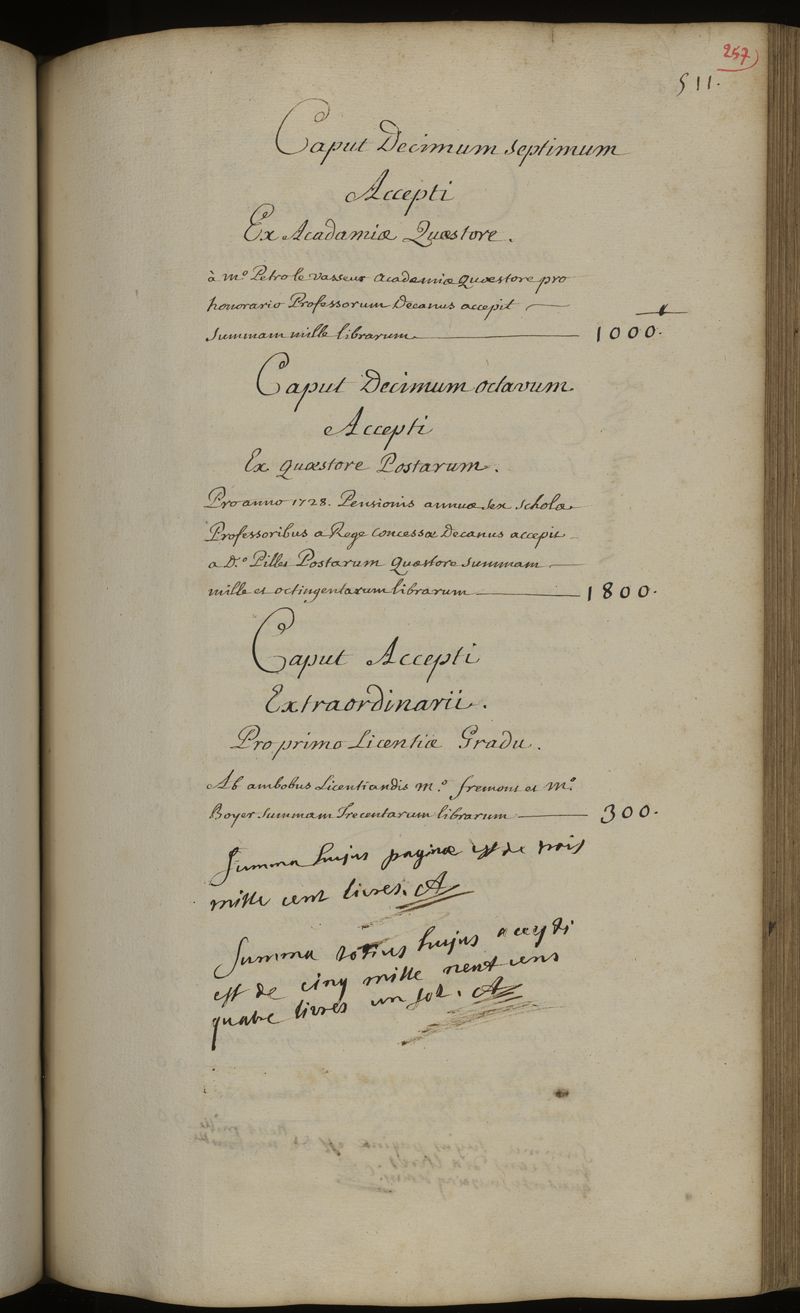 257
511.
Caput Decimum septimum
Accepti
Ex Acadamiæ Quæstore.
à m.º Petro le vasseur Academiæ Quæstore pro
honorario Professorum Decanus accepit
Summam mille librarum
1000.
Caput Decimum octavum
Accepti
Ex quæstore Postarum.
Pro anno 1728. Pensionis annuæ sex Scholæ
Professoribus a Rege Concessæ Decanus accepit
a D.º Pilles Postarum Quæstore Summam
mille et octingentarum librarum
1800.
Caput Accepti
Extraordinarii.
Pro primo Licentiæ Gradu.
Ab ambobus Licentiandis M.º fremont et M.º
Boyer Summam Trecentarum librarum
300.
Summa hujus paginæ est de trois
mille cent livres. A
Summa totius hujus accepti
est de cinq mille neuf cens
quatre livres un sol. A